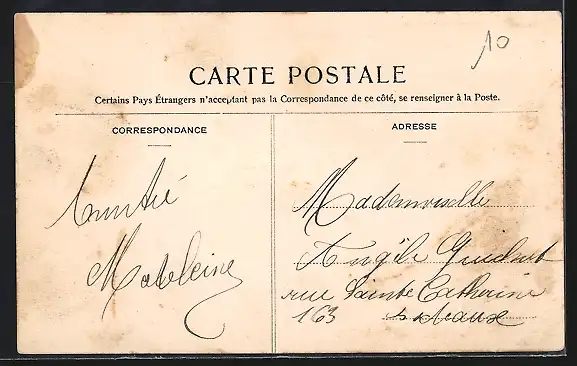 10
CARTE POSTALE
Certains Pays Étrangers n'acceptant pas la Correspondance de ce côté, se renseigner à la Poste.
CORRESPONDANCE
Amitié
Madeleine
ADRESSE
Mademoiselle
Angèle
rue Sainte Catherine
163